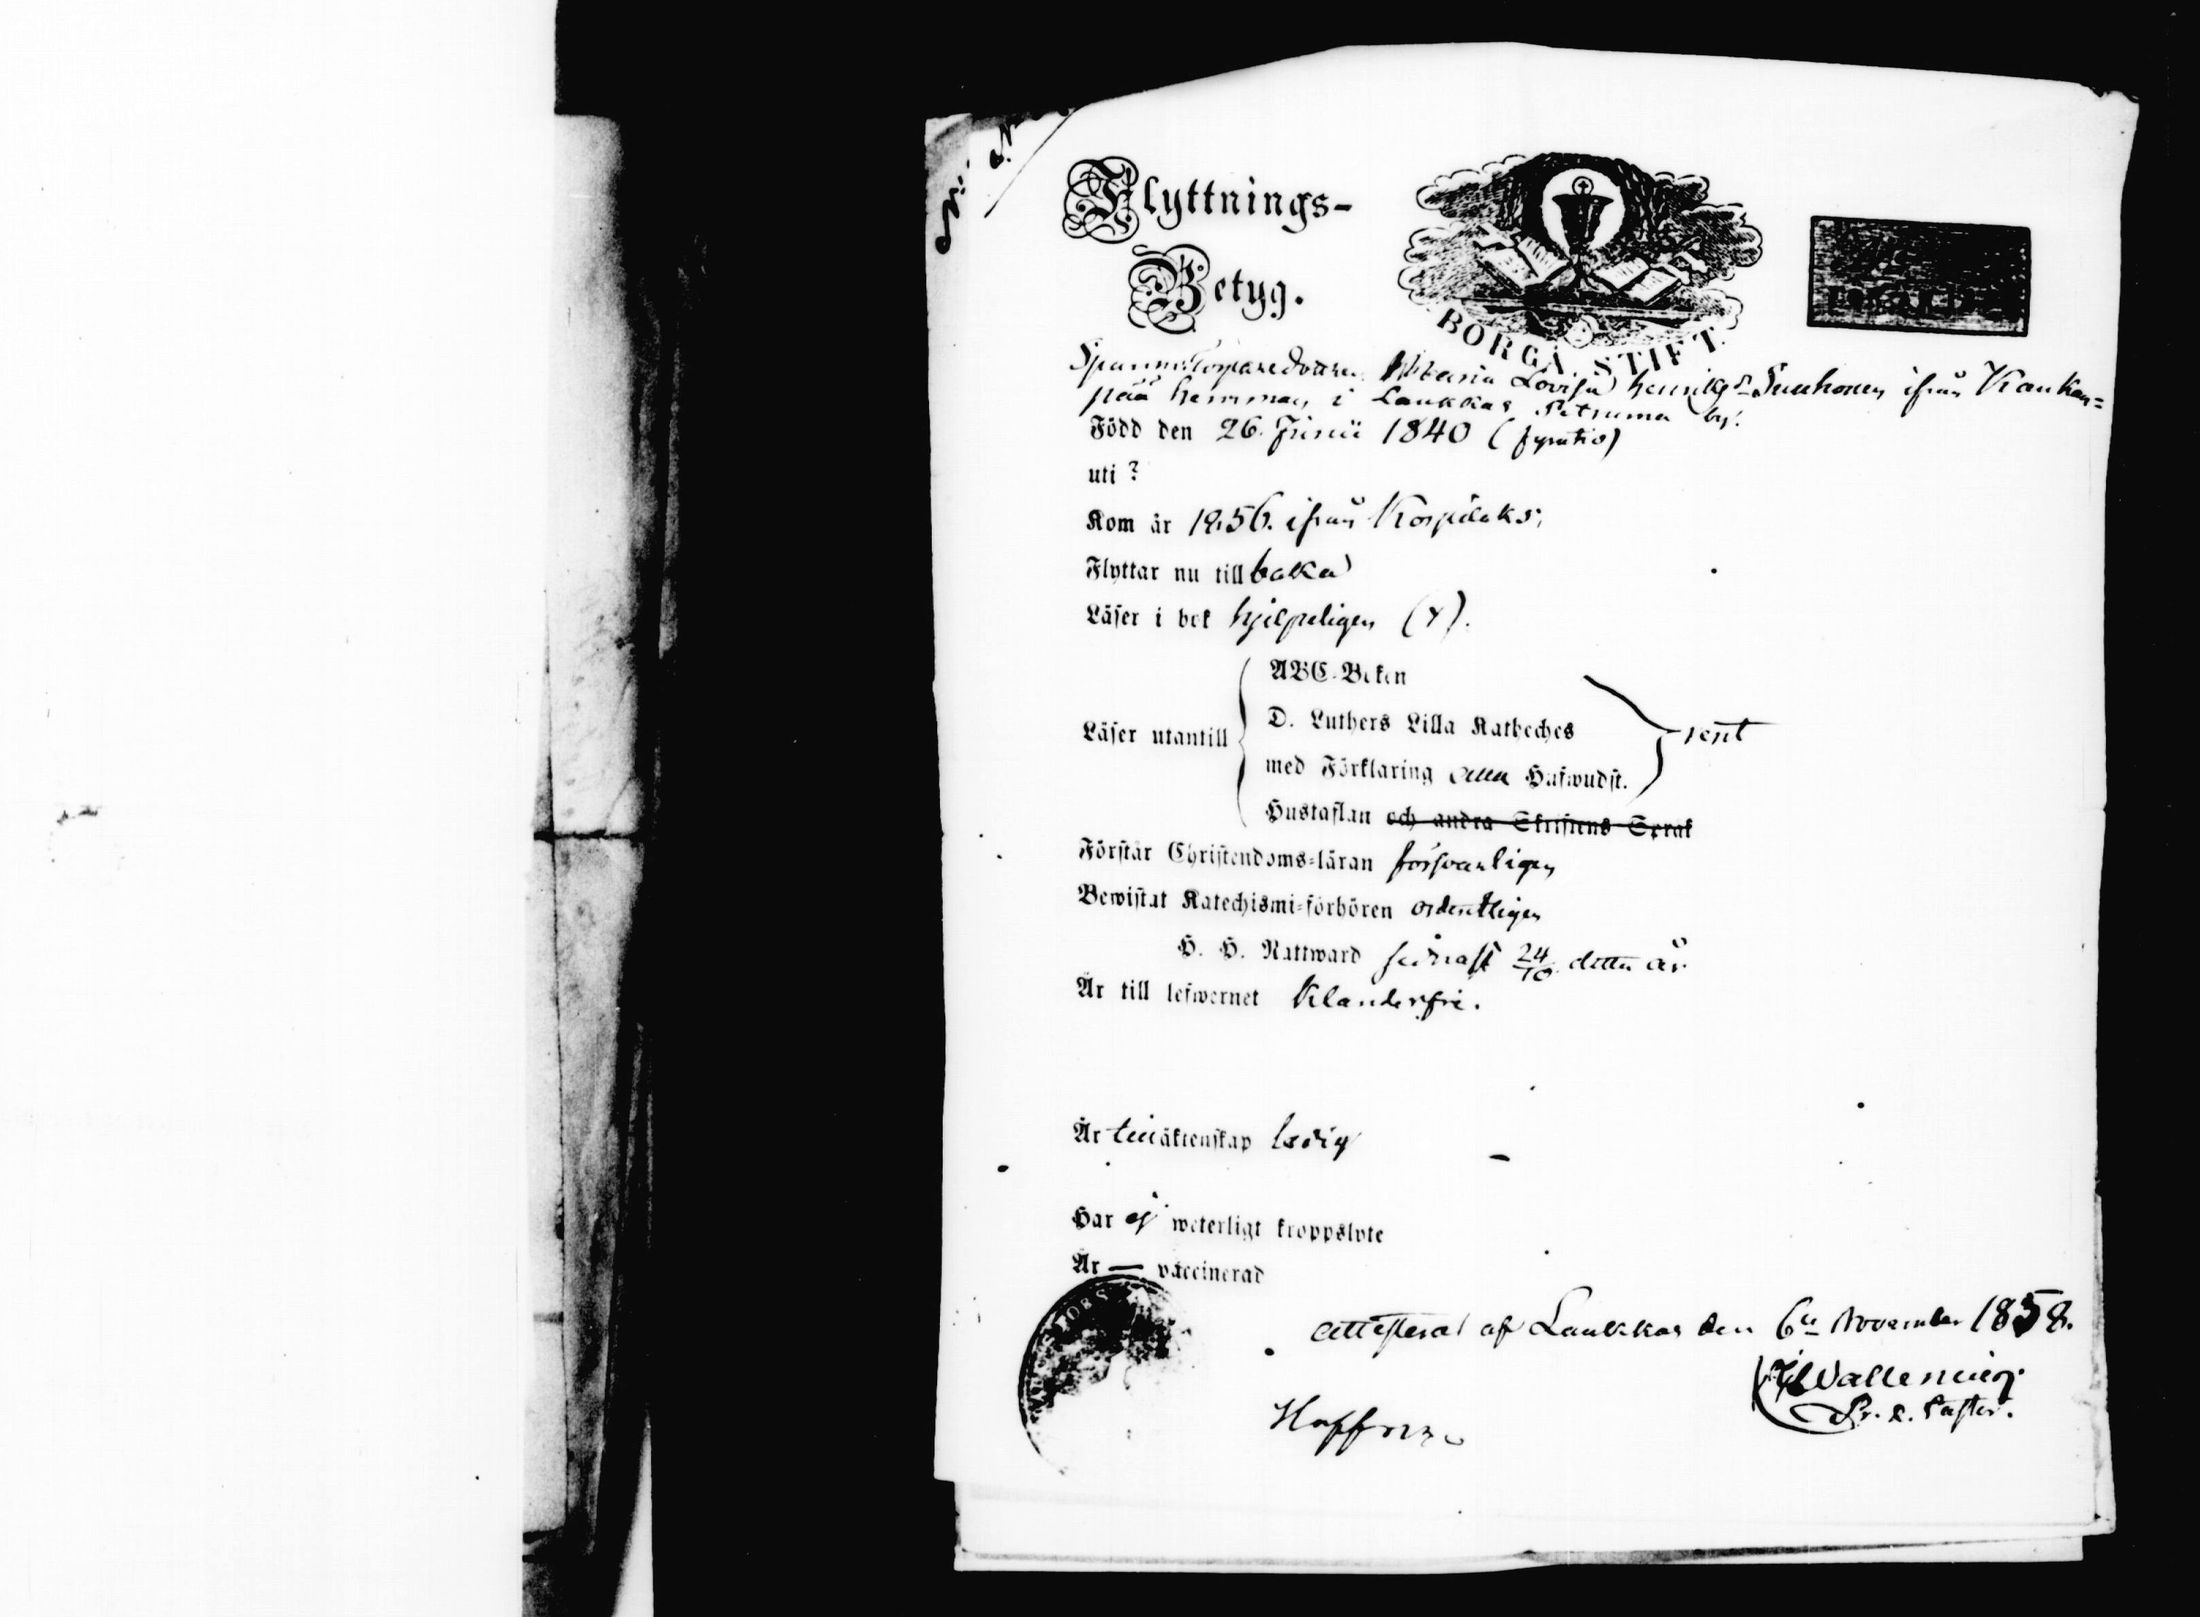 Flyttnings-
Betyg.
BORGÅ STIFT.
Maria Lovisa Henriksdr ifrån Kankan=
pää hemman i Laukkas by.
Född den 26. Junii 1840 (fyratio)
uti ?
Kom år 1856. ifrån Korpilaks;
Flyttar nu tillbaka
Läser i bok hjelpeligen
Läser utantill
ABC-Boken
D. Luthers Lilla Katheches
med Förklaring alla Hufwudst.
rent
Hustaflan och andra Skriftens Språk
Förstår Christendoms-läran försvarligen
Bewistat Katechismi-förhören ordentligen
H. H. Nattward sednast 24/10 detta år
Är till lefwernet klanderfri.
Är till äktenskap ledig
Har ej weterligt kroppslyte
Är — vaccinerad
attesterar af Laukkas den 6te November 1858.
Wallenius.
Pastor.